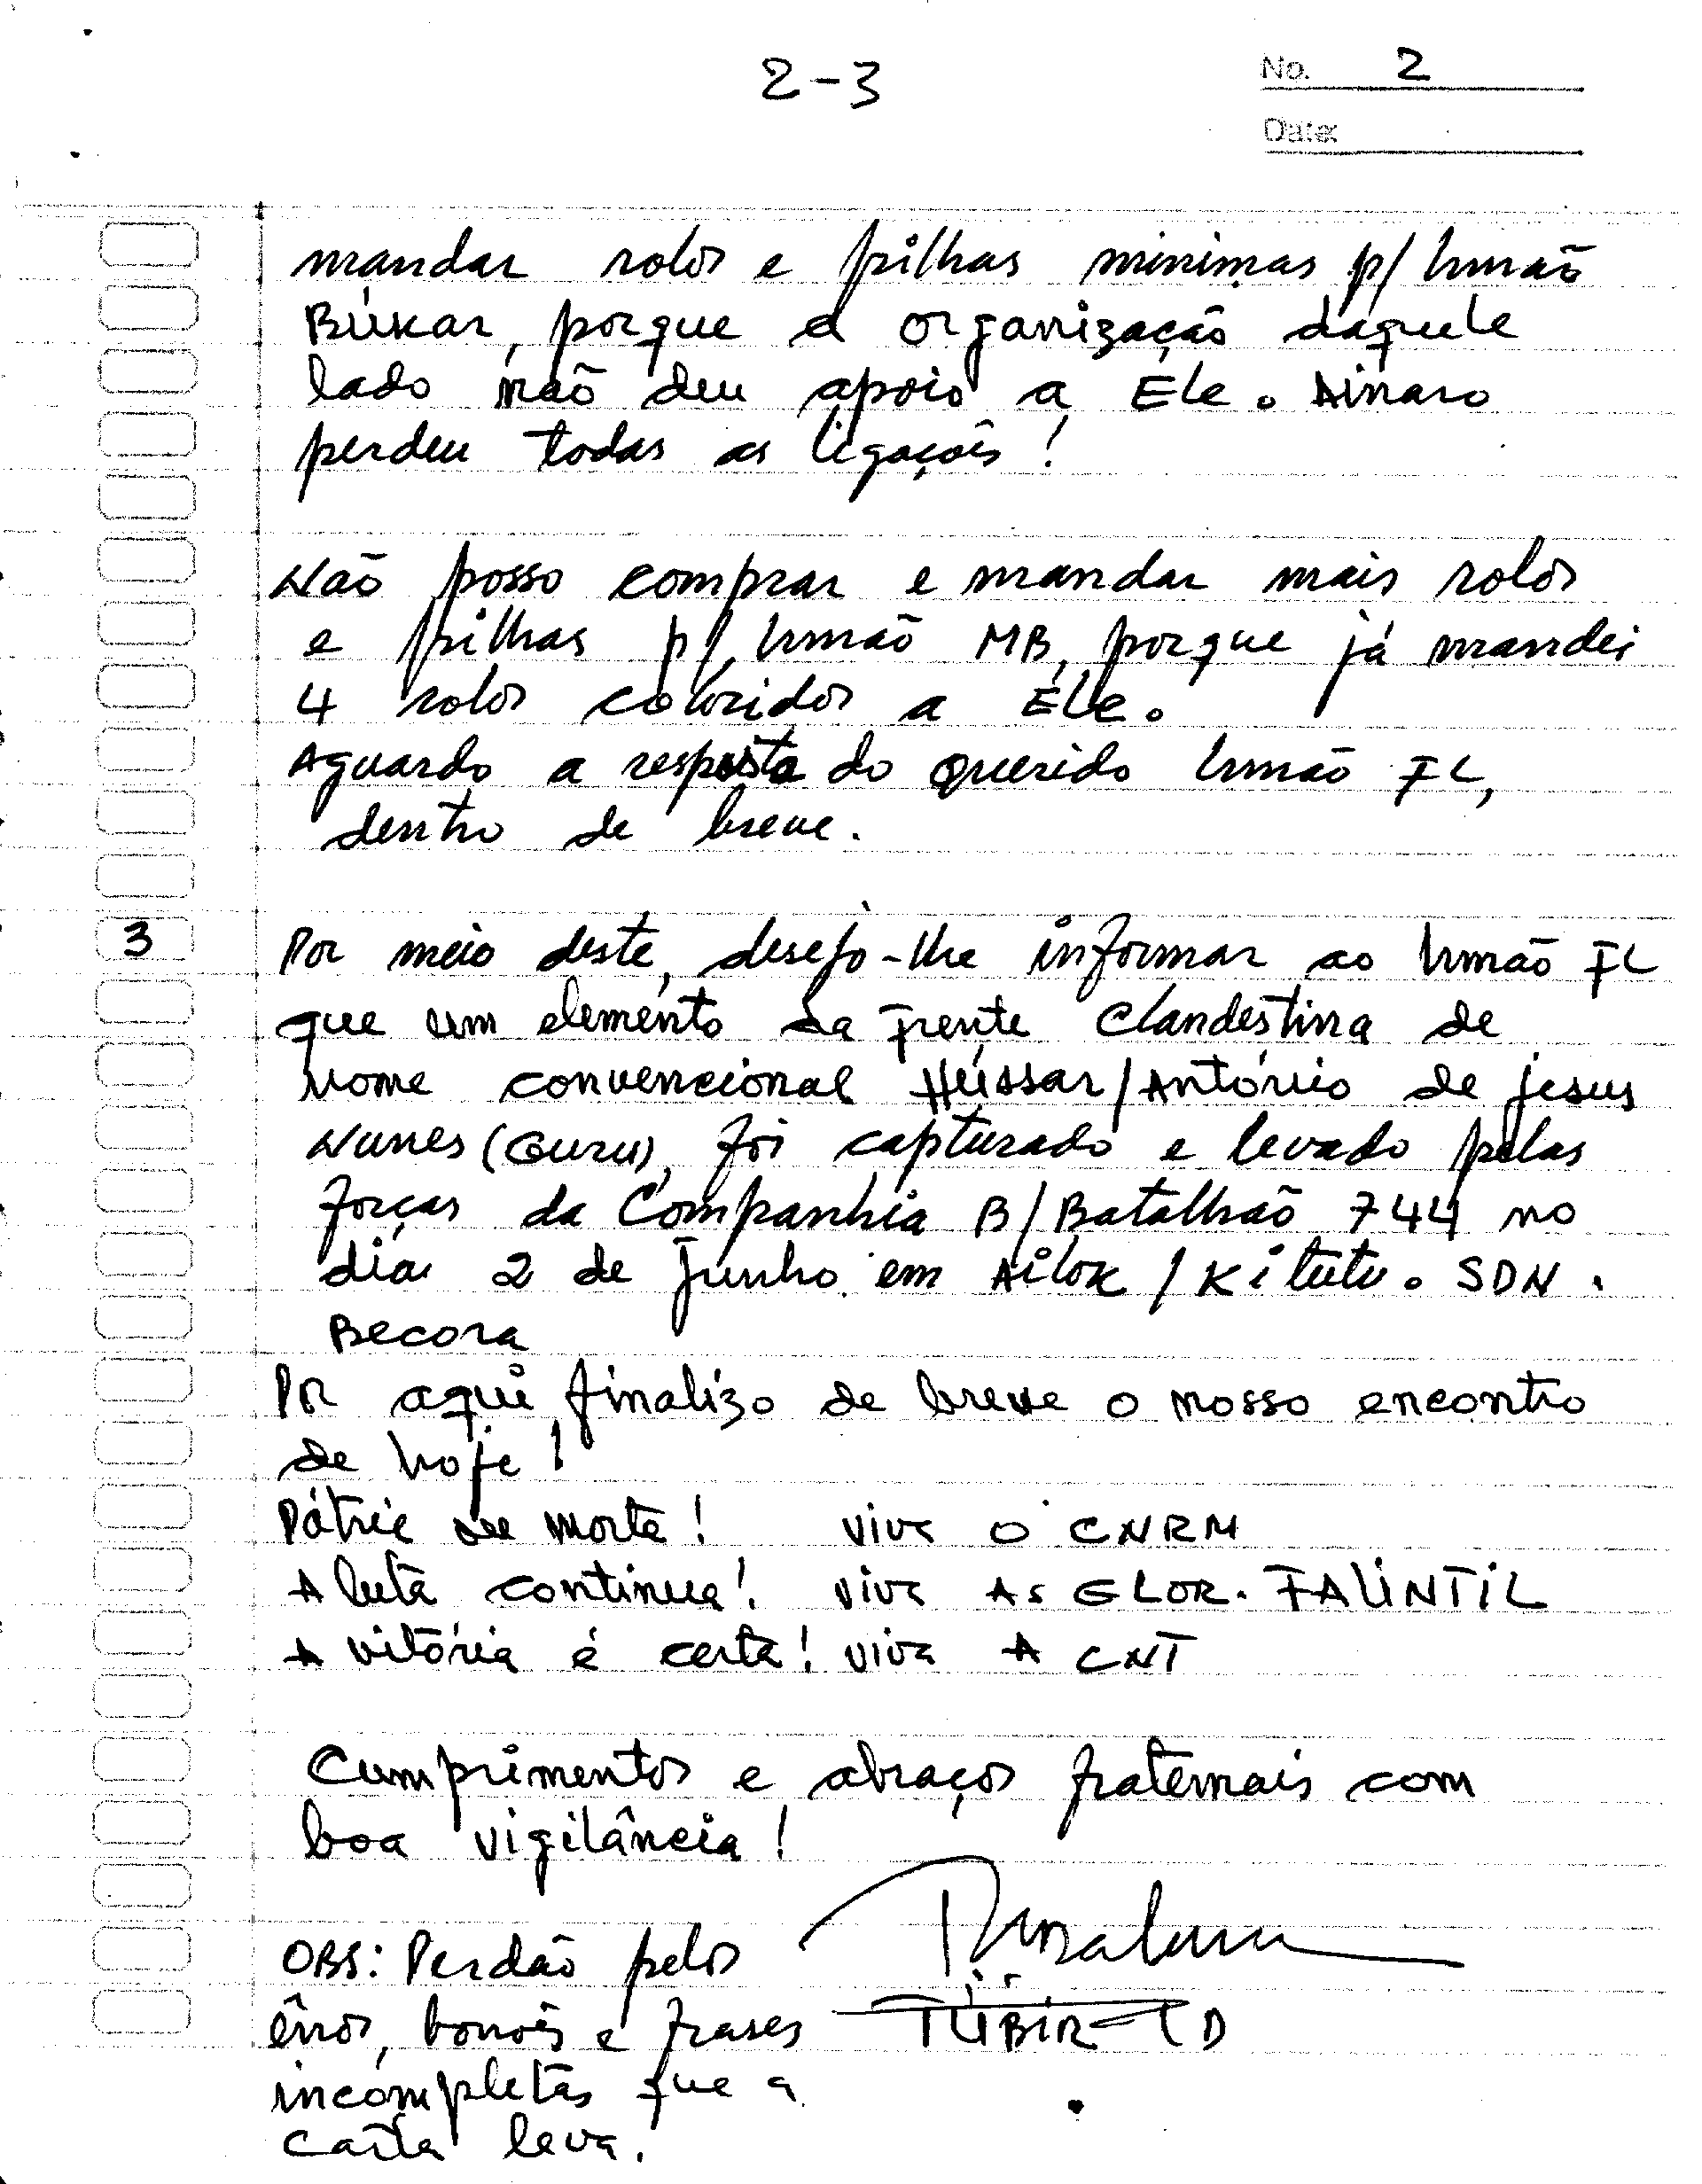 2-3
No. 2
Date:
mandar rolos e pilhas minimas p/ Irmão
Búkar, porque a organização daquele
lado não deu apoio a Ele. Ainaro
perdeu todas as ligações!
Não posso comprar e mandar mais rolos
e pilhas p/ Irmão MB, porque já mandei
4 rolos coloridos a Ele.
Aguardo a resposta do querido Irmão FL,
dentro de breve.
3 Por meio deste, desejo-lhe informar ao Irmão FL
que um elemento da Frente Clandestina de
Nome convencional Héissar/António de Jesus
Nunes (Guru), foi capturado e levado pelas
forças da Companhia B/Batalhão 744 no
dia 2 de Junho em Ailok / Kitutu. SDN.
Becora
Por aqui, finalizo de breve o nosso encontro
de hoje!
Pátria ou morte! Viva o CNRM
A luta continua! Viva As GLOR. FALINTIL
A vitória é certa! Viva A CNT
Cumprimentos e abraços fraternais com
boa vigilância!
OBS: Perdão pelos
êrros, borrões e frases
TÜBIR-LD
incompletas que a
carta leva.